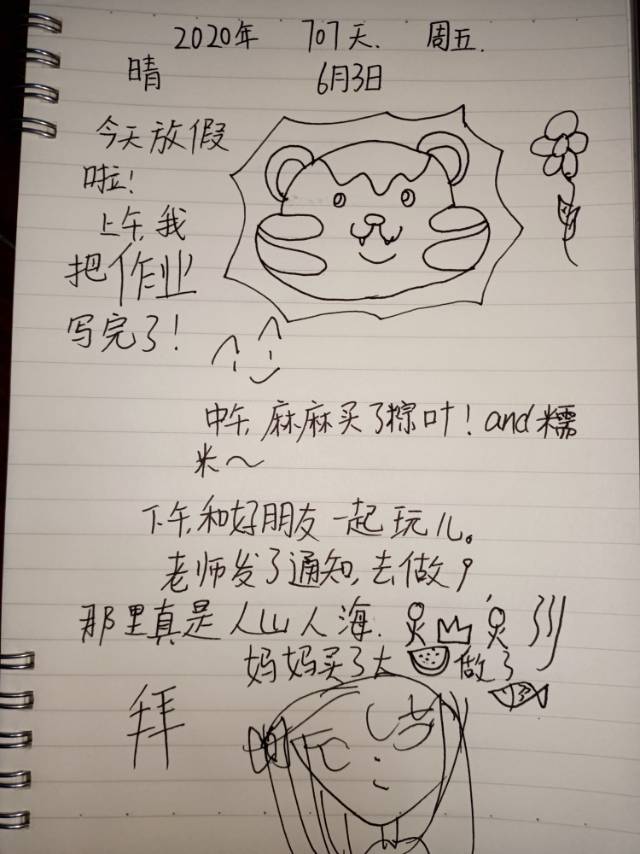 2020年 707天. 周五.
晴 6月3日
今天放假
啦!
上午,我
把作业
写完了!
中午,麻麻买了粽叶!and糯
米~
下午,和好朋友一起玩儿。
老师发了通知,去做9,
那里真是人山人海.
妈妈买了大 做了
拜